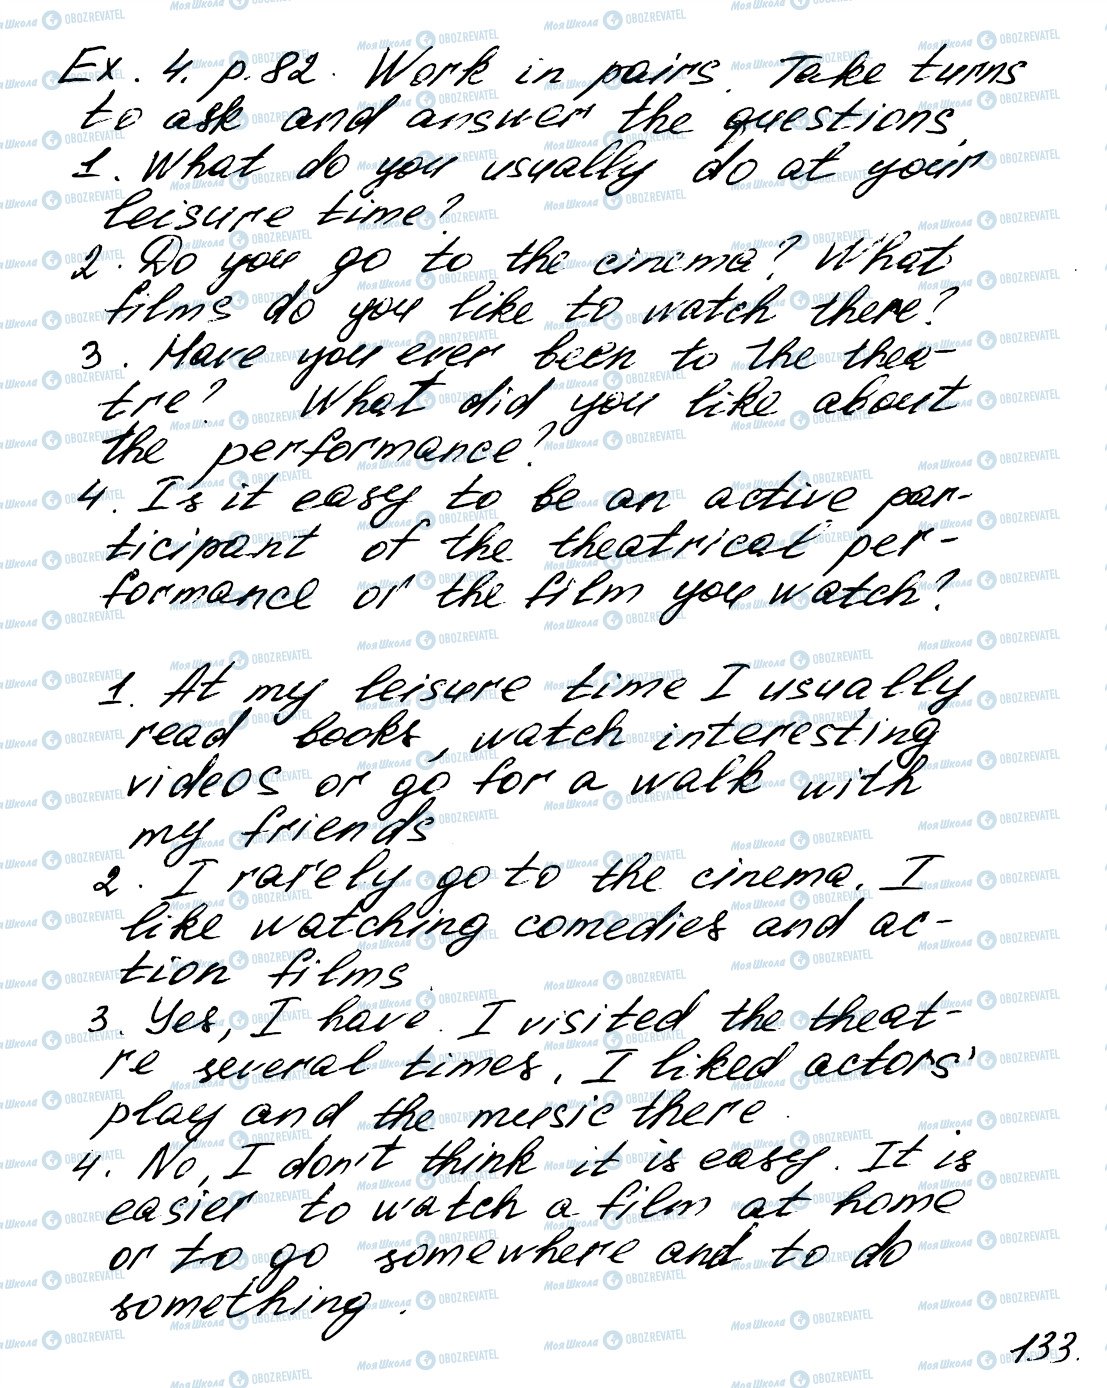 Ex. 4. p. 82. Work in pairs. Take turns
to ask and answer the questions.
1. What do you usually do at your
leisure time?
2. Do you go to the cinema? What
films do you like to watch there?
3. Have you ever been to the thea-
tre? What did you like about
the performance?
4. Is it easy to be an active par-
ticipant of the theatrical per-
formance or the film you watch?
1. At my leisure time I usually
read books, watch interesting
videos or go for a walk with
my friends
2. I rarely go to the cinema. I
like watching comedies and ac-
tion films.
3. Yes, I have. I visited the theat-
re several times. I liked actors'
play and the music there.
4. No, I don't think it is easy. It is
easier to watch a film at home
or to go somewhere and to do
something.
133.